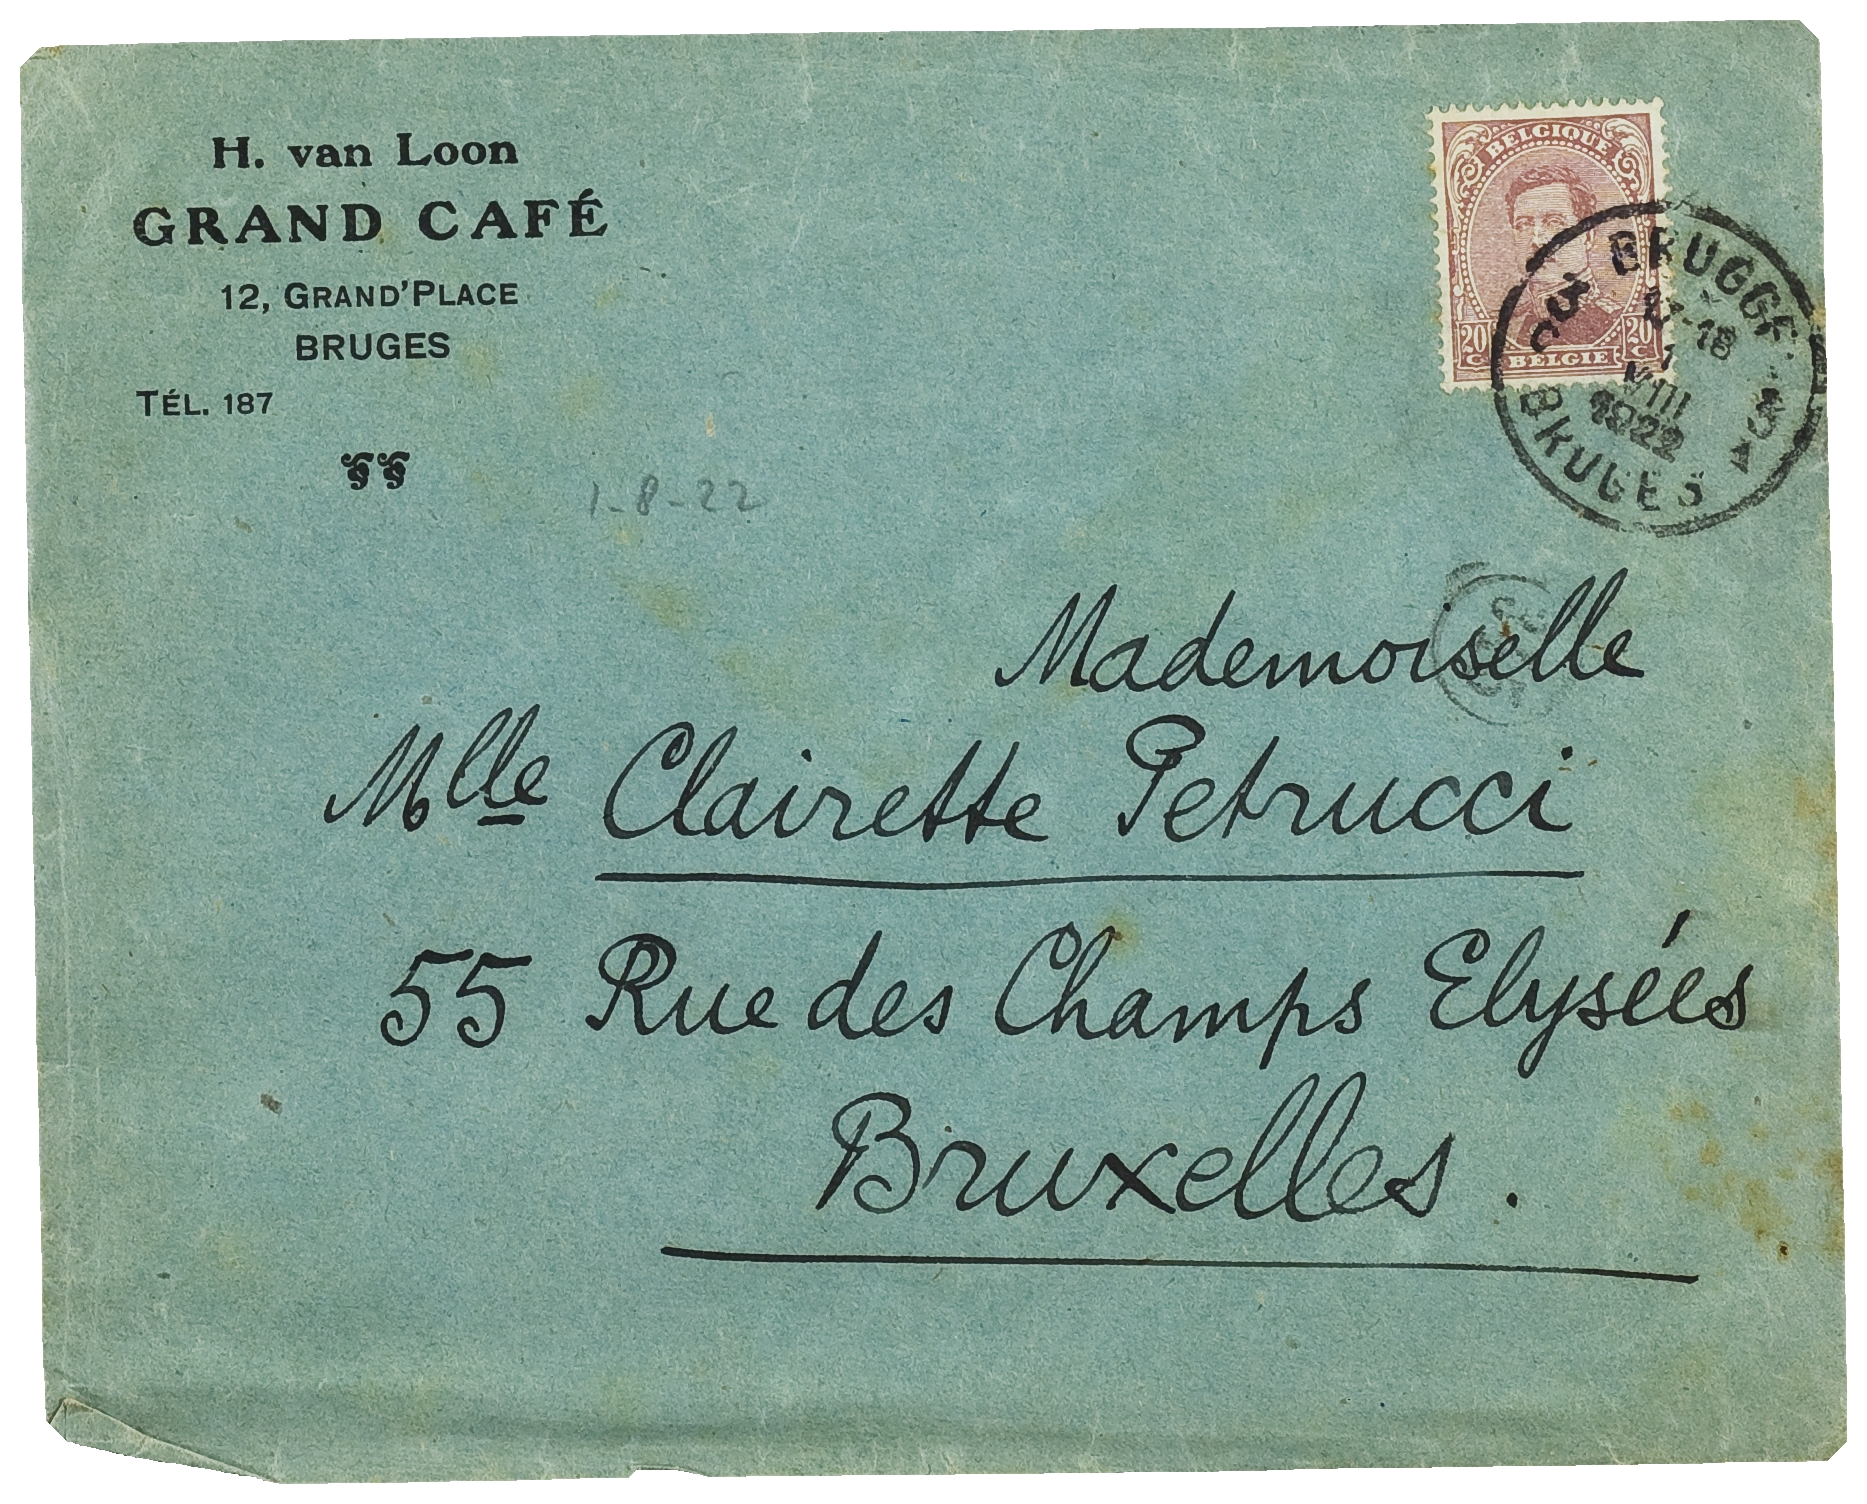 H. van Loon
GRAND CAFÉ
12, GRAND'PLACE
BRUGES
TÉL. 187
BELGIQUE
20 C 20 C
BELGIE
BRUGGE 3
-18
1
VIII
1922
BRUGES
3C
1-8-22
Mademoiselle
Mlle Clairette Petrucci
55 Rue des Champs Elysées
Bruxelles.